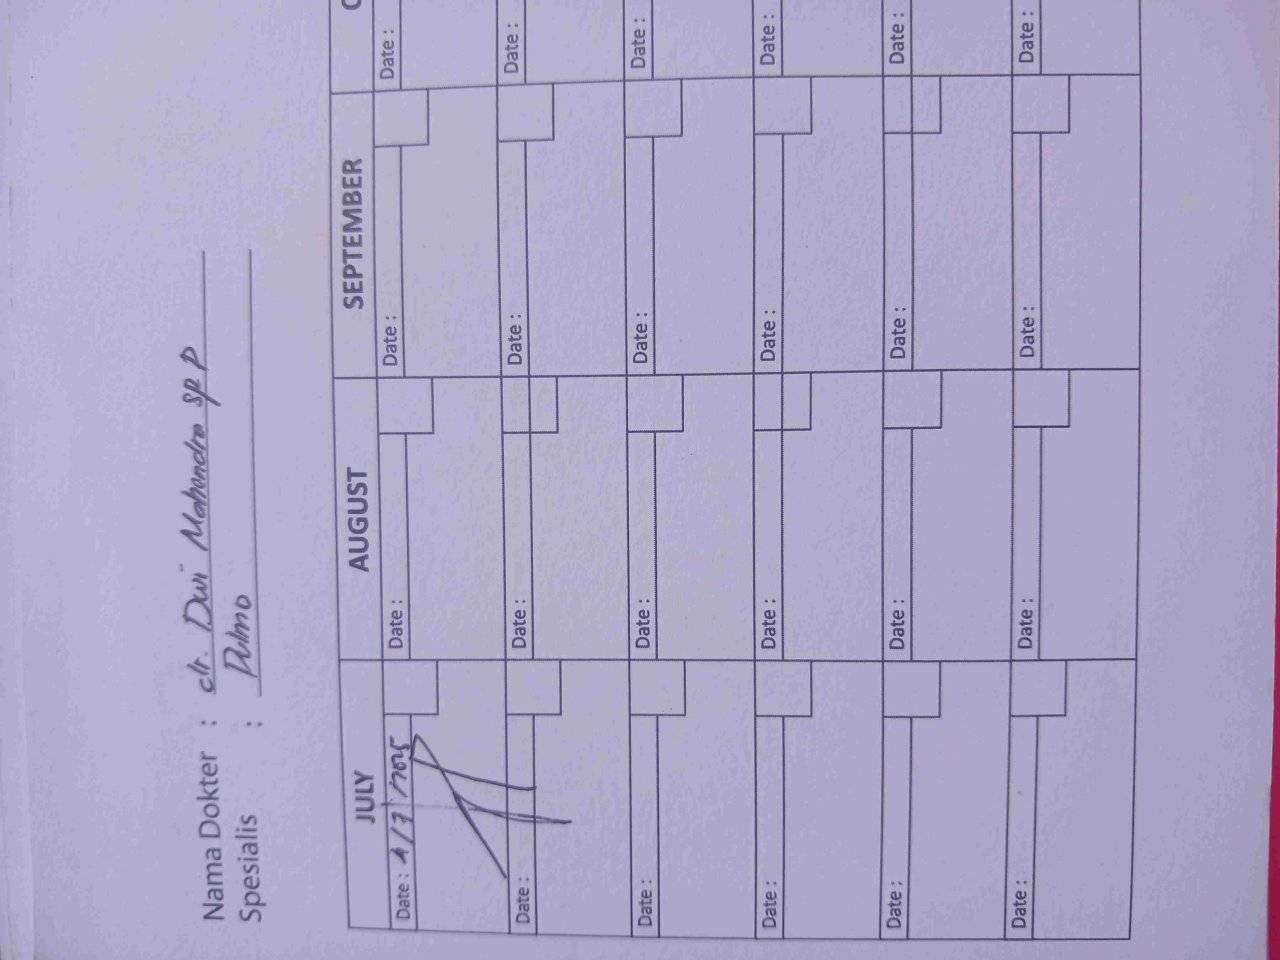 Nama Dokter : dr. Dwi Mahendra Sp P
Spesialis : Pulmo
JULY AUGUST SEPTEMBER
Date : 4/7/2025 Date : Date : Date :
Date : Date : Date : Date :
Date : Date : Date : Date :
Date : Date : Date : Date :
Date : Date : Date : Date :
Date : Date : Date : Date :